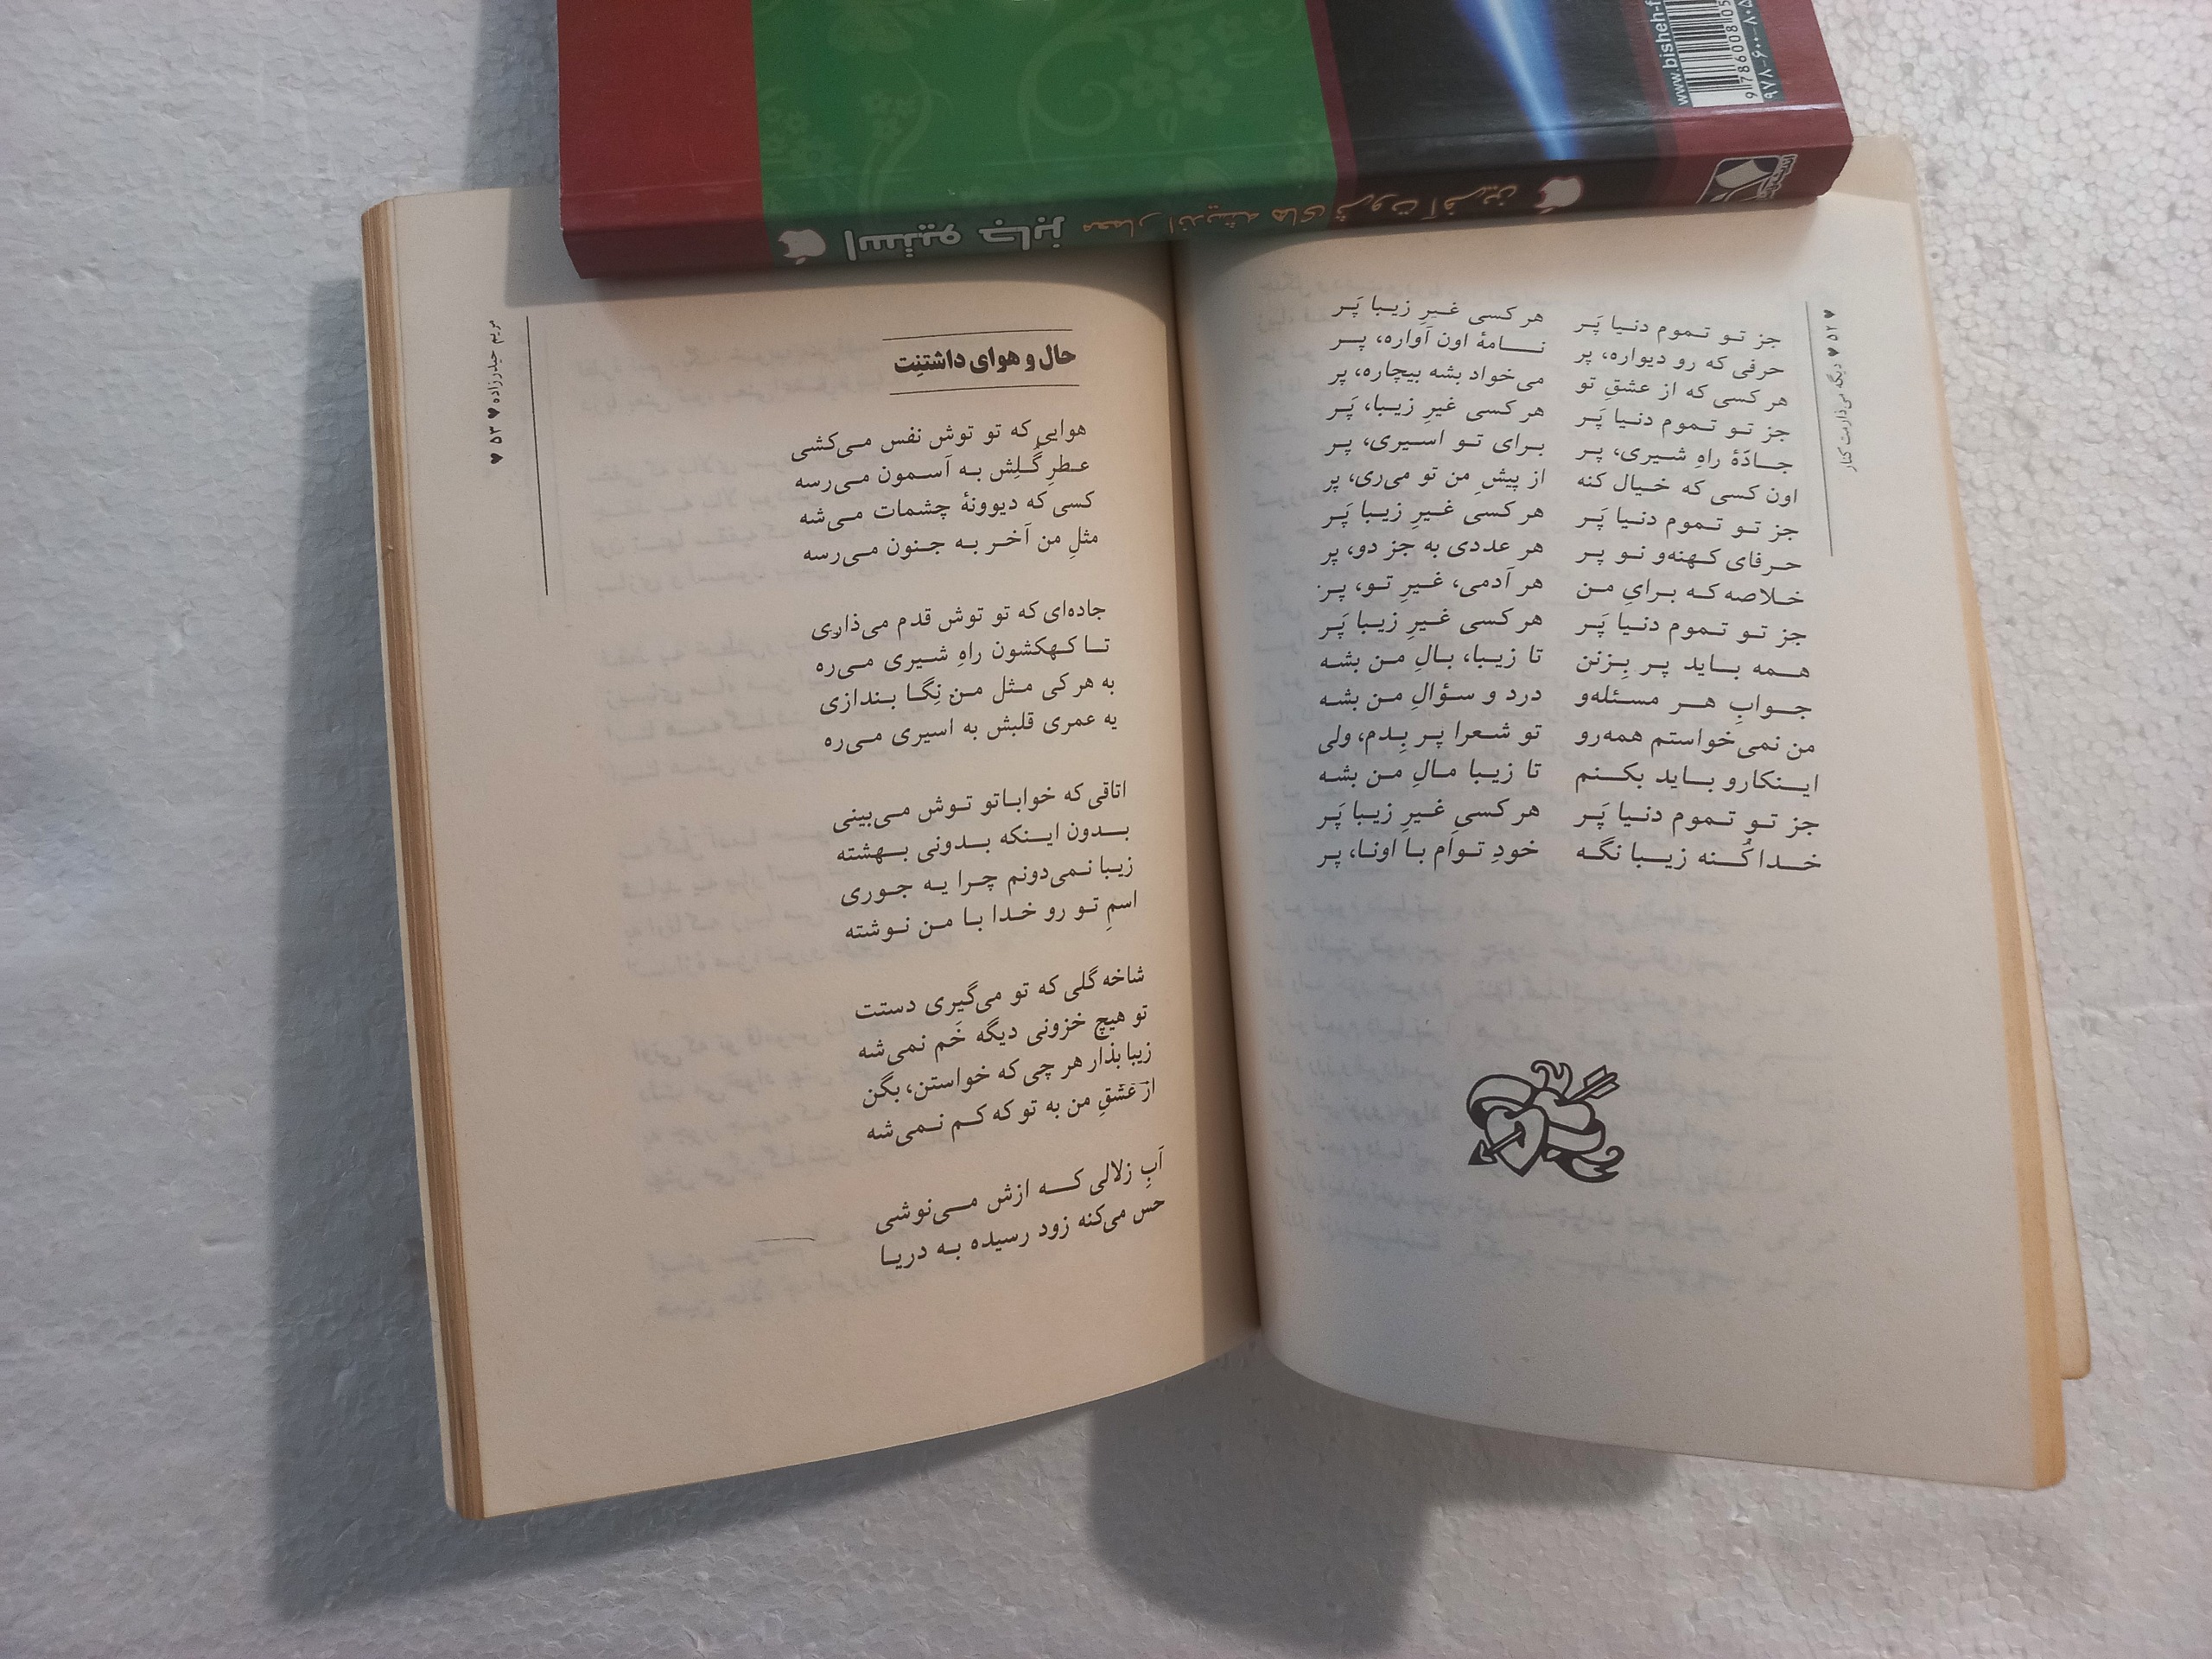 www.bisheh-f
استیو جابز معمار اندیشه های ثروت آفرین
♥ ۵۲ ♥ دیگه می‌ذارمت کنار
جز تو تموم دنیا پَر هر کسی غیرِ زیبا پَر
حرفی که رو دیواره، پر نامهٔ اون آواره، پر
هر کسی که از عشقِ تو می‌خواد بشه بیچاره، پر
جز تو تموم دنیا پَر هر کسی غیرِ زیبا، پَر
جادّهٔ راهِ شیری، پر برای تو اسیری، پر
اون کسی که خیال کنه از پیشِ من تو می‌ری، پر
جز تو تموم دنیا پَر هر کسی غیرِ زیبا پَر
حرفای کهنه‌و نو پر هر عددی به جز دو، پر
خلاصه که برایِ من هر آدمی، غیرِ تو، پر
جز تو تموم دنیا پَر هر کسی غیرِ زیبا پَر
همه باید پر بِزنن تا زیبا، بالِ من بشه
جوابِ هر مسئله‌و درد و سؤالِ من بشه
من نمی‌خواستم همه‌رو تو شعرا پر بِدم، ولی
اینکارو باید بکنم تا زیبا مالِ من بشه
جز تو تموم دنیا پَر هر کسی غیرِ زیبا پَر
خدا کُنه زیبا نگه خودِ توأم با اونا، پر
مریم حیدرزاده ♥ ۵۳ ♥
حال و هوای داشتنِت
هوایی که تو توش نفس می‌کشی
عطرِ گُلِش به آسمون می‌رسه
کسی که دیوونهٔ چشمات می‌شه
مثلِ من آخر به جنون می‌رسه
جاده‌ای که تو توش قدم می‌ذاری
تا کهکشون راهِ شیری می‌ره
به هر کی مثل من نِگا بندازی
یه عمری قلبش به اسیری می‌ره
اتاقی که خواباتو توش می‌بینی
بدون اینکه بدونی بهشته
زیبا نمی‌دونم چرا یه جوری
اسمِ تو رو خدا با من نوشته
شاخه گلی که تو می‌گیری دستت
تو هیچ خزونی دیگه خَم نمی‌شه
زیبا بذار هر چی که خواستن، بگن
از عشقِ من به تو که کم نمی‌شه
آبِ زلالی که ازش می‌نوشی
حس می‌کنه زود رسیده به دریا